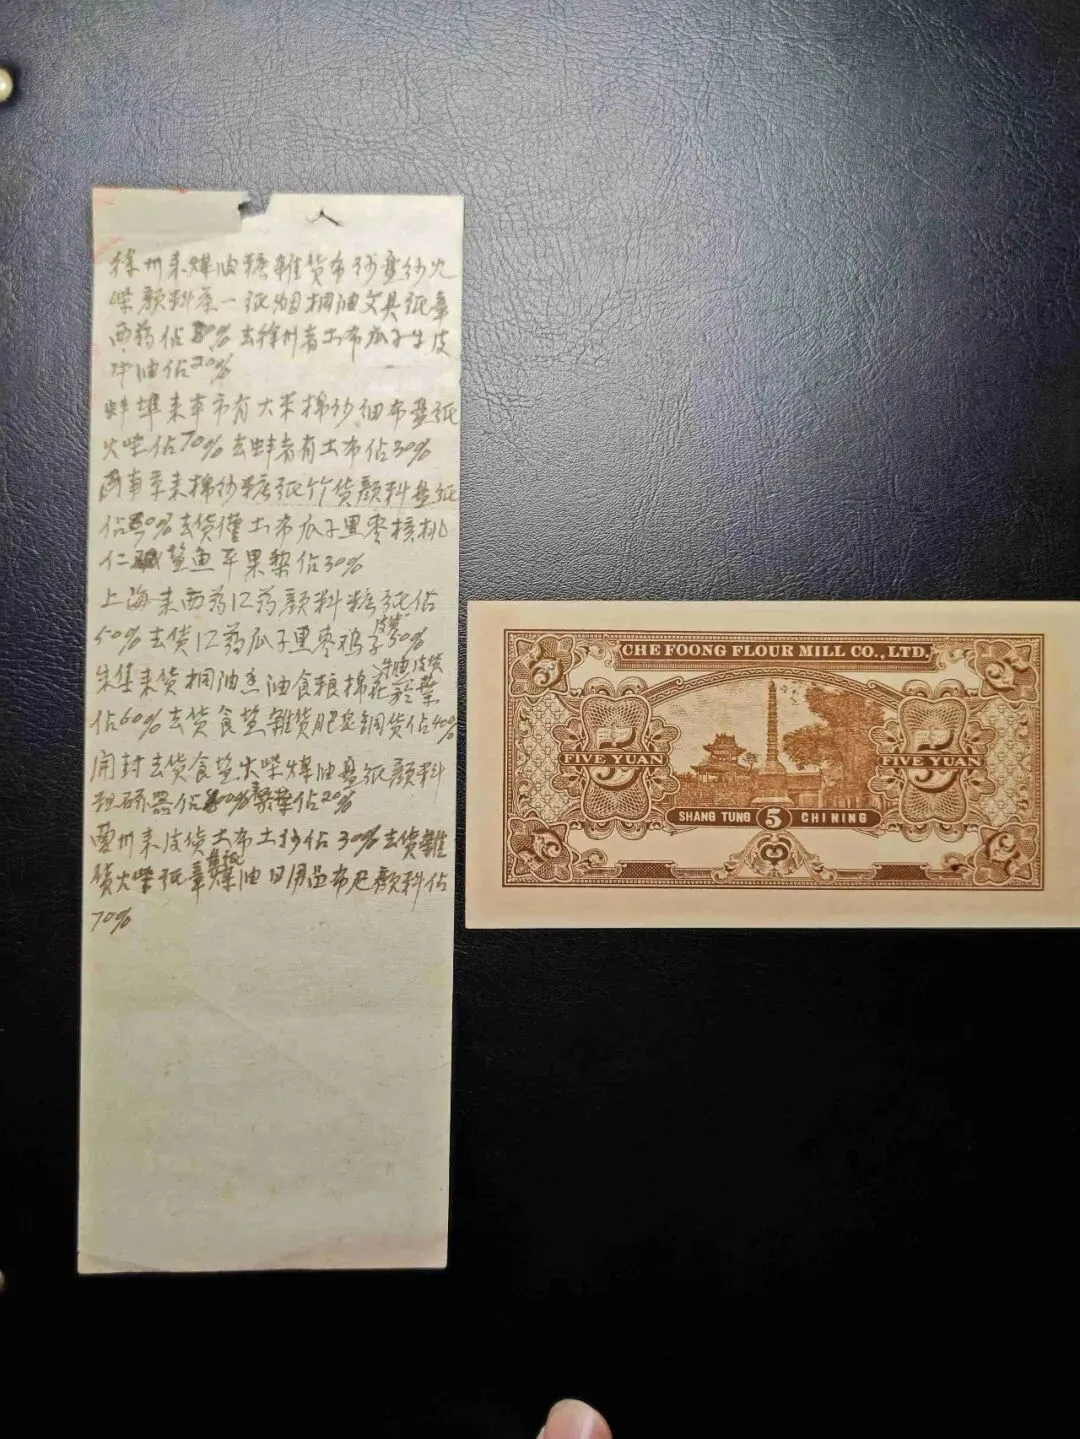 徐州来煤油糖雜货布纱盘纱火
柴颜料茶一纸烟桐油文具纸章
西药佔80%去徐州者土布瓜子牛皮
油佔20%
蚌埠来本市有大米棉纱细布盘纸
火柴佔70%去蚌者有土布佔30%
来棉纱糖纸竹货颜料盘纸
佔%去货僅土布瓜子黑枣核桃
仁鹹鱼平果梨佔30%
上海来西药江药颜料糖纸佔
50%去货江药瓜子黑枣鸡子皮货50%
朱集来货桐油香油食粮棉花牛油皮货
佔60%去货食盐雜货肥皂铜货佔40%
開封去货食盐火柴煤油盘纸颜料
器佔80%佔20%
来皮货土布土纱佔30%去货雜
货火柴纸章盘纸煤油日用品布疋颜料佔
70%
CHE FOONG FLOUR MILL CO., LTD.
5 5
FIVE YUAN 5 FIVE YUAN 5
SHANG TUNG 5 CHI NING
5 5